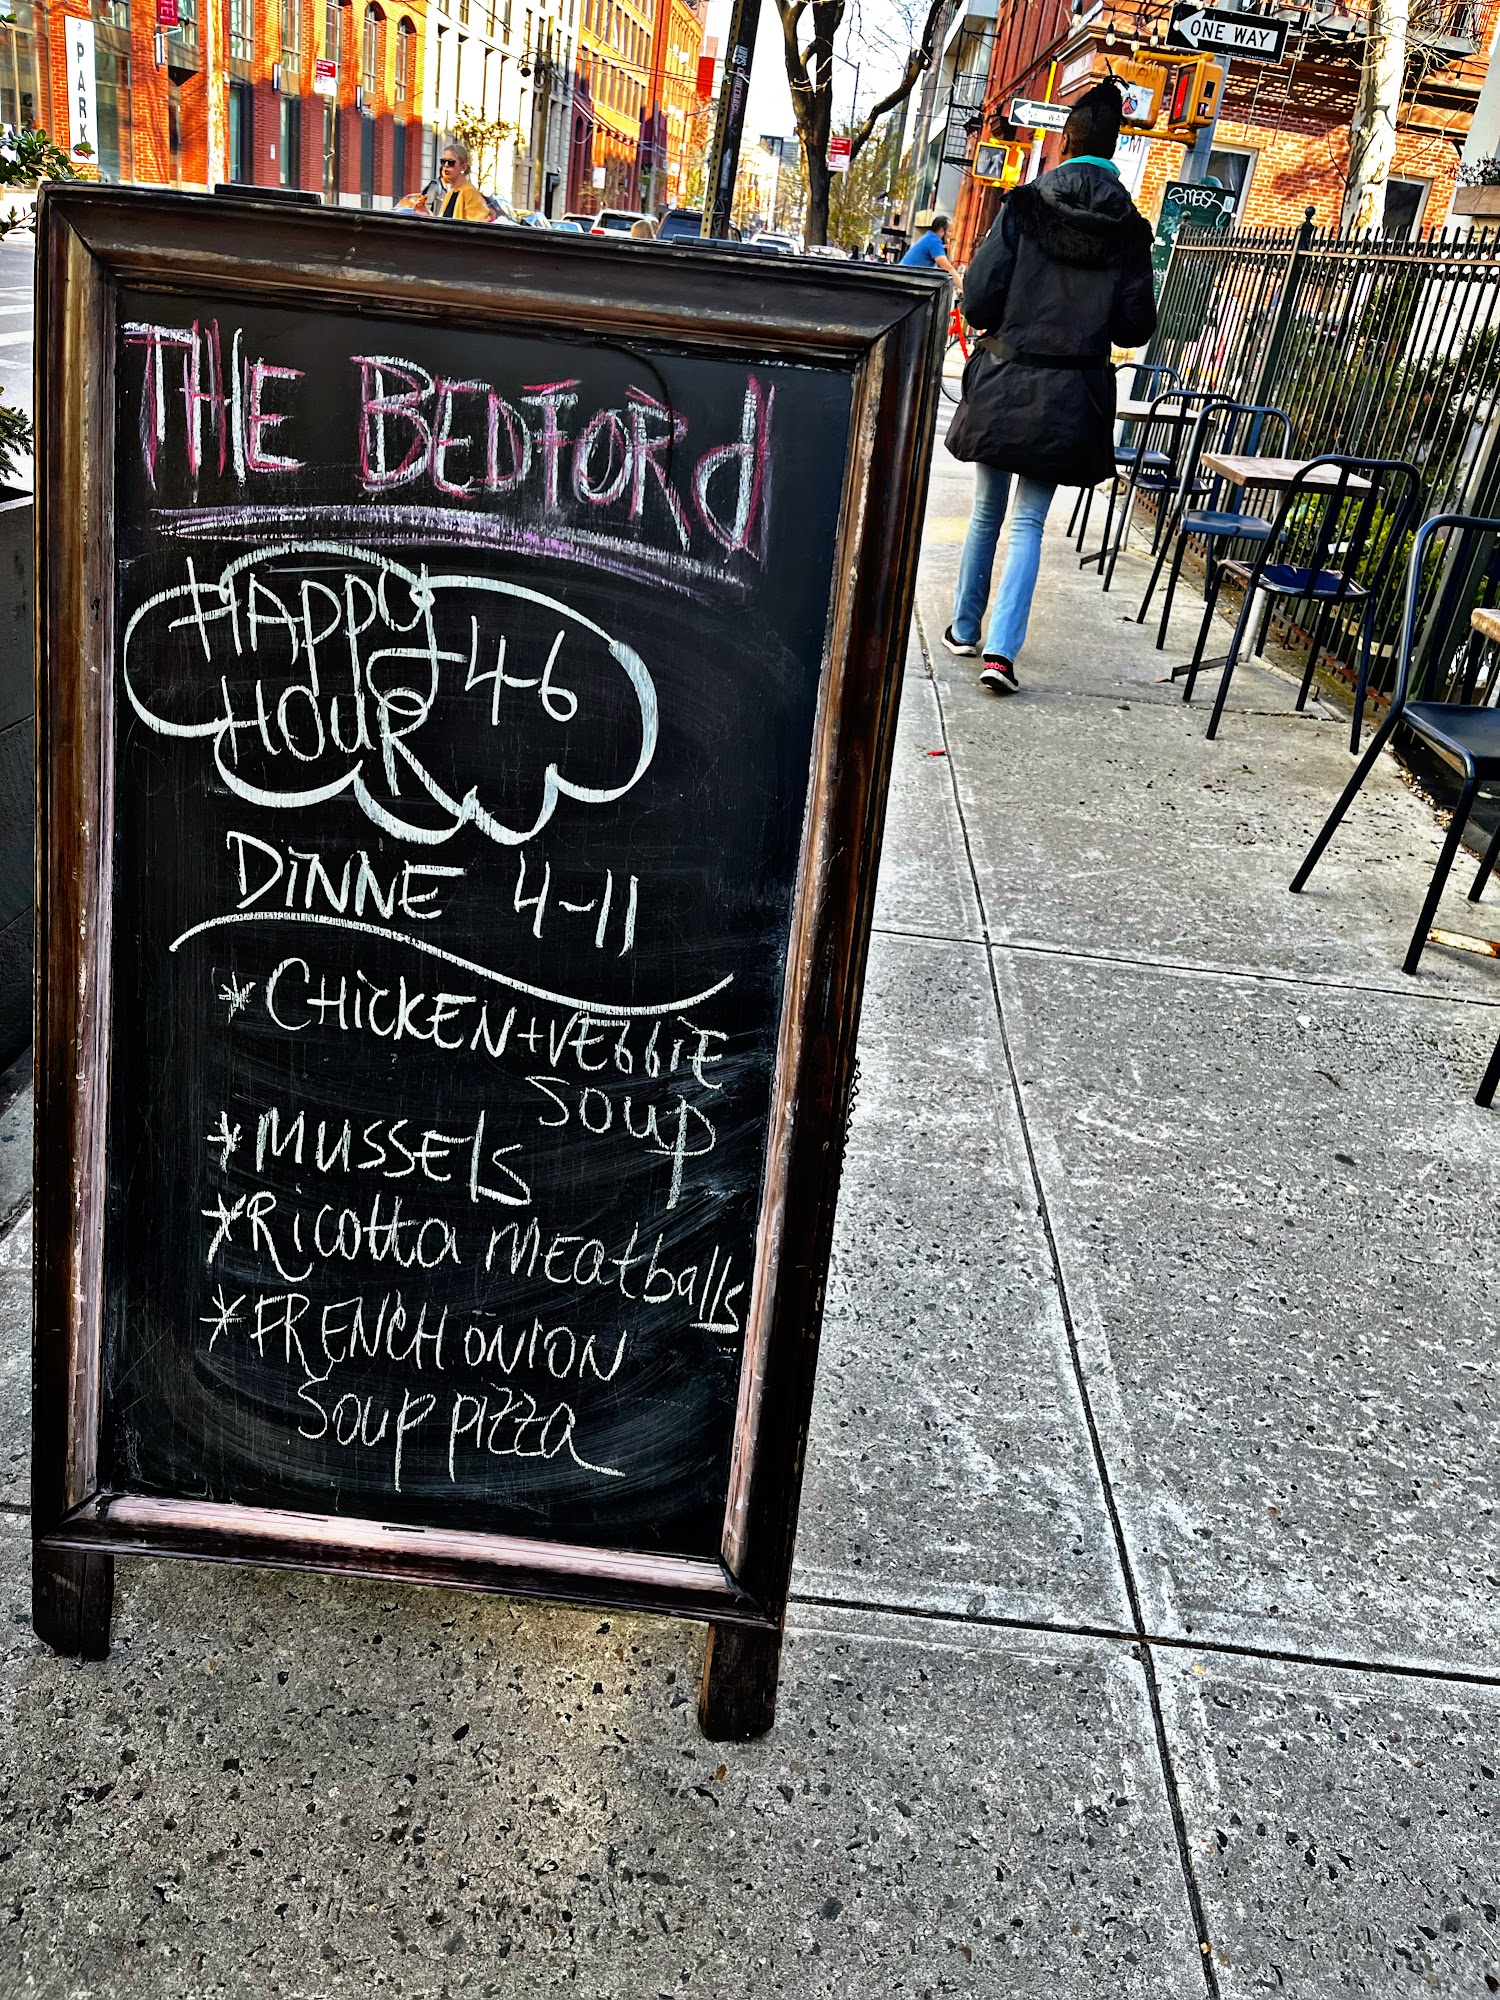 THE BEDFORd
HAPPY
HOUR
4-6
DINNE 4-11
* CHICKEN + VEGGIE
SOUP
* MUSSELS
* Ricotta Meatballs
* FRENCH ONION
Soup pizza
PARK
ONE WAY
SMESH
Reebok